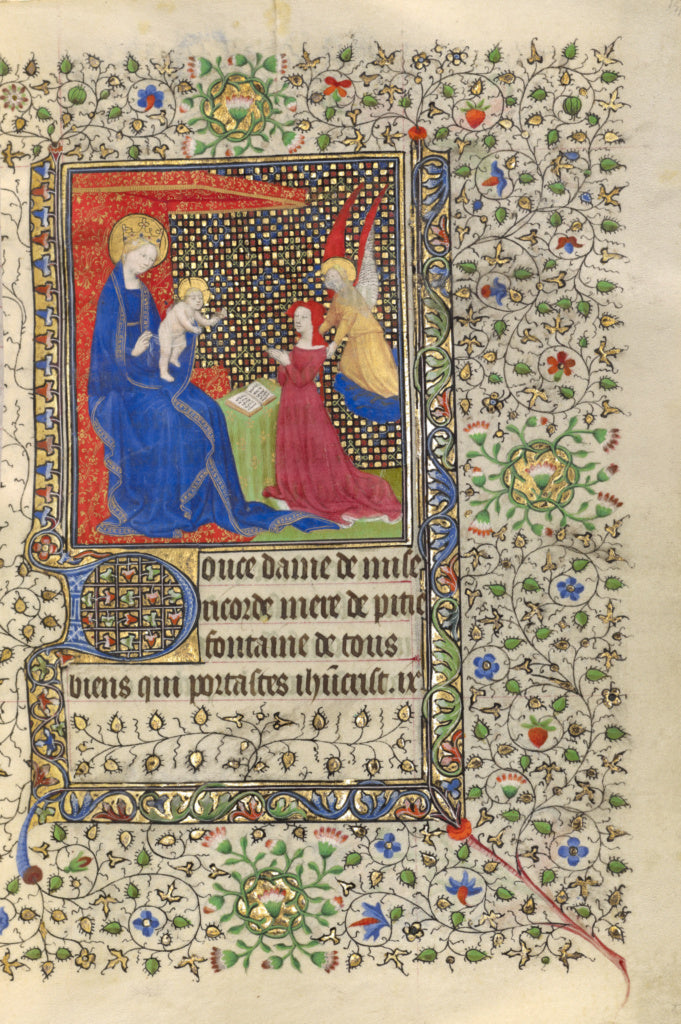 Douce dame de mise
ricorde mere de pitie
fontaine de tous
biens qui portastes ihūcrist. ix